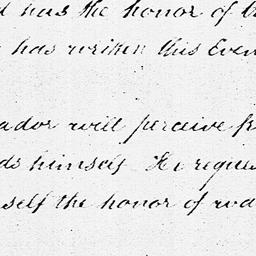 has the honor of
has written this Even
ador will perceive fr
ds himself He reques
self the honor of wa